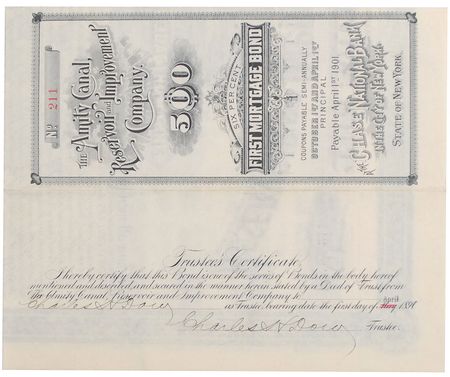 No 211
THE Amity Canal,
Reservoir AND Improvement
Company.
500
SIX PER CENT
FIRST MORTGAGE BOND
COUPONS PAYABLE SEMI-ANNUALLY
OCTOBER 1ST AND APRIL 1ST
PRINCIPAL
Payable April 1st 1901
THE CHASE NATIONAL BANK
IN THE CITY OF NEW YORK
STATE OF NEW YORK.
Trustee's Certificate.
I hereby certify that this Bond is one of the series of Bonds in the body hereof
mentioned and described, and secured in the manner herein stated by a Deed of Trust from
The Amity Canal, Reservoir and Improvement Company to
April
Charles N Dow as Trustee bearing date the first day of May 189
Charles N Dow Trustee.